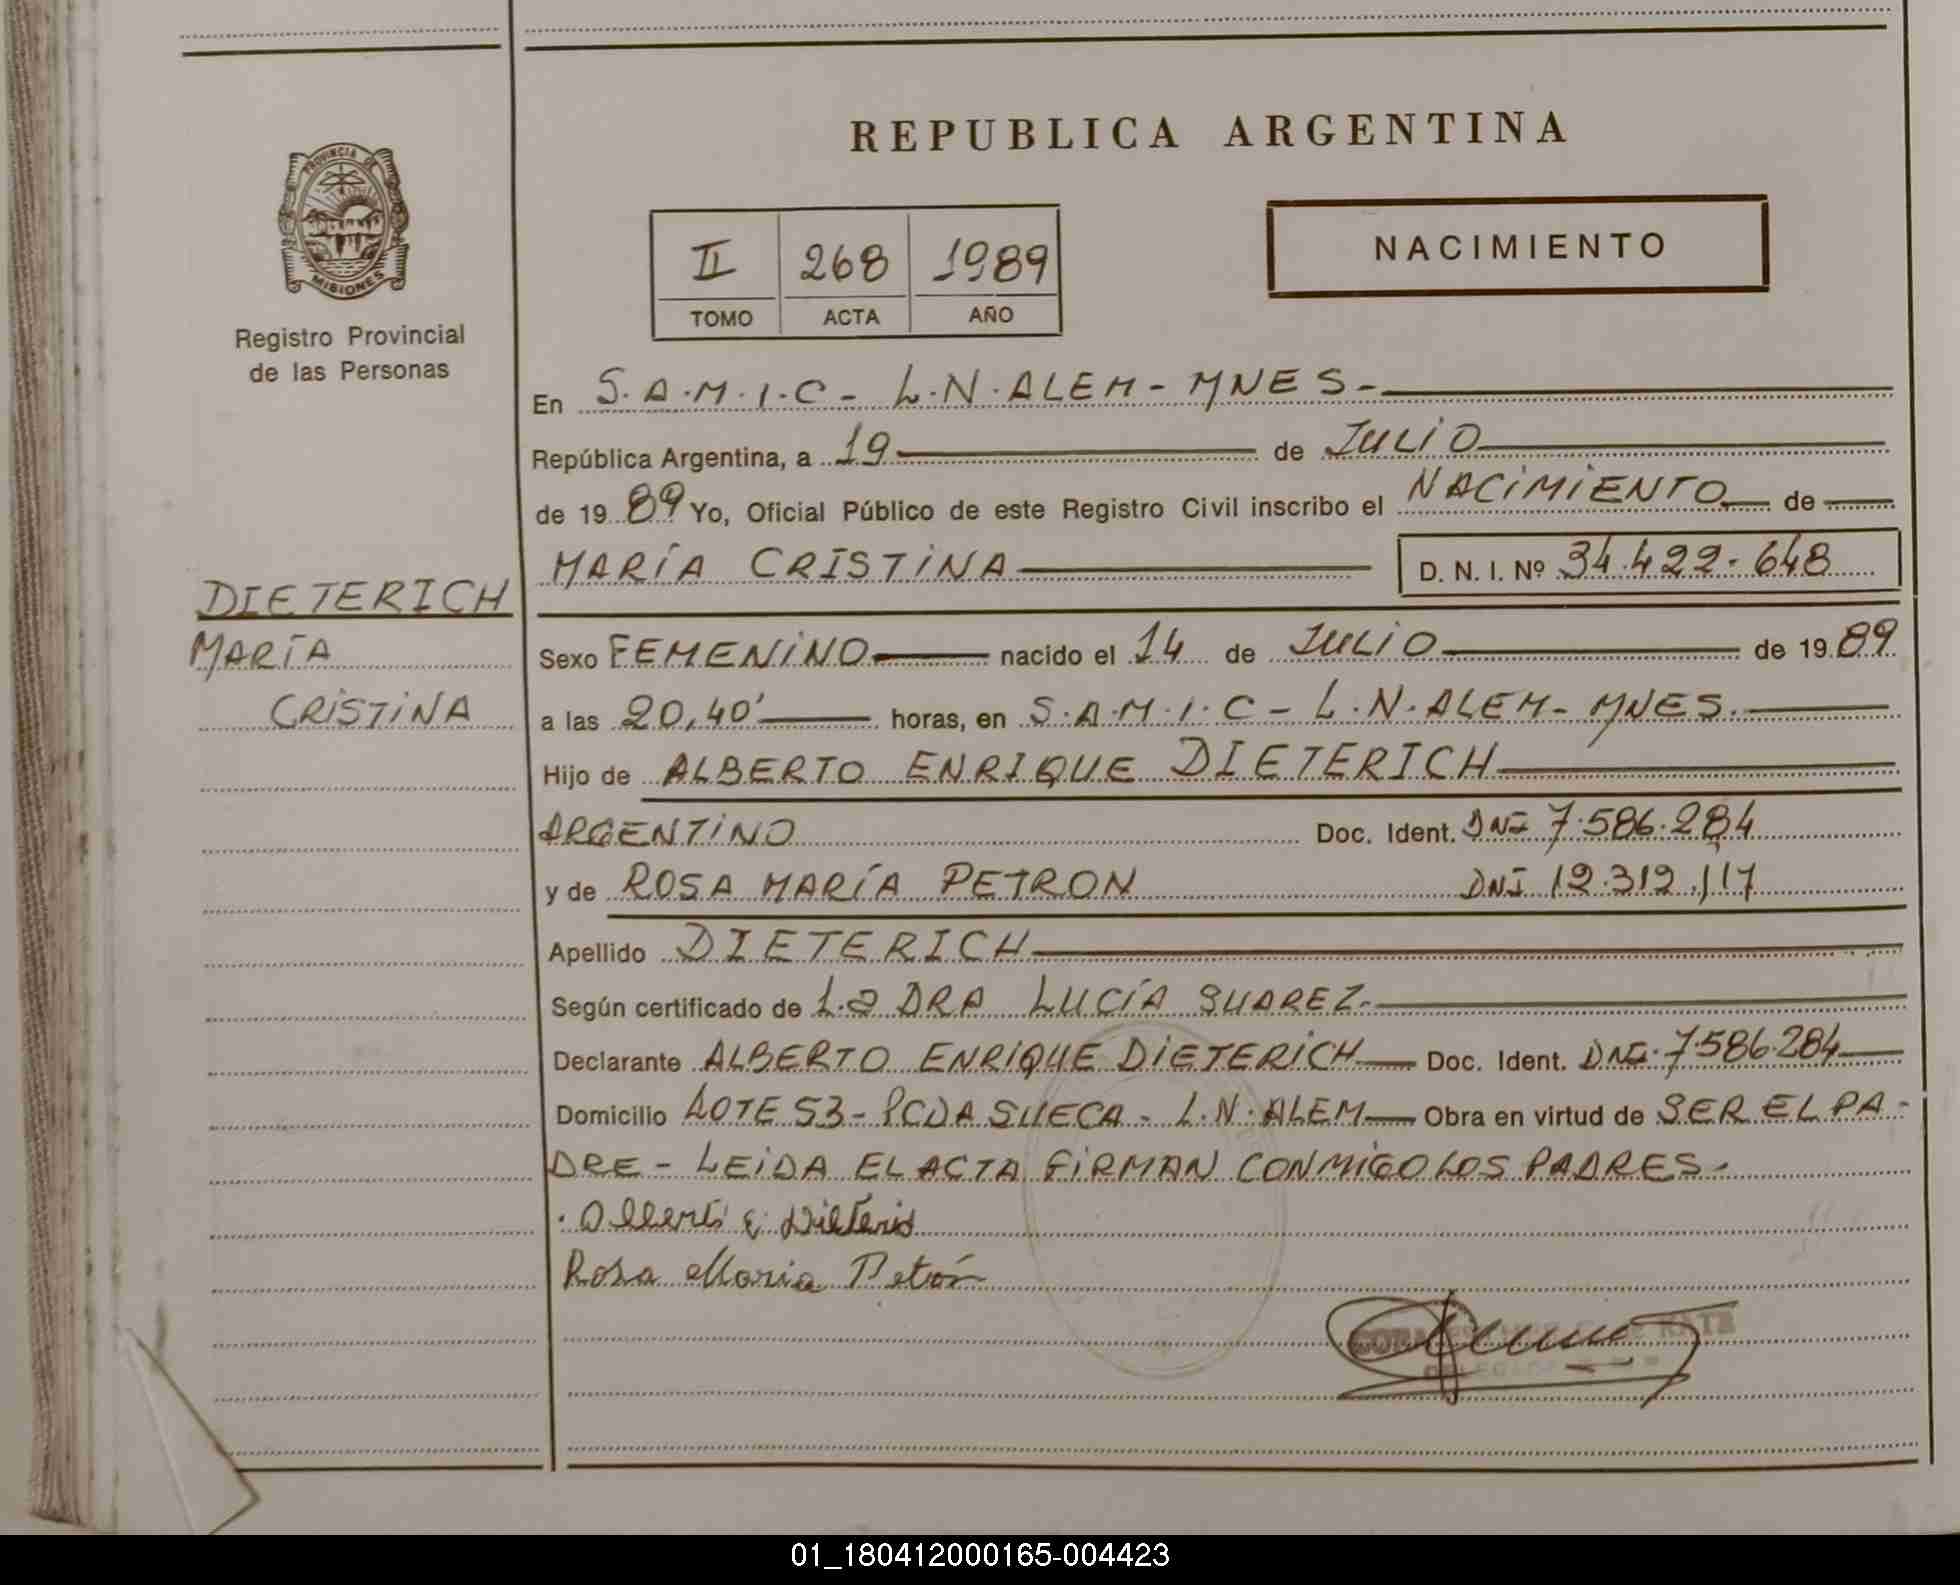 REPUBLICA ARGENTINA
PROVINCIA DE
MISIONES
Registro Provincial
de las Personas
II 268 1989
TOMO ACTA AÑO
NACIMIENTO
En S.A.M.I.C - L.N.ALEM - MNES -
República Argentina, a 19 de JULIO
de 1989 Yo, Oficial Público de este Registro Civil inscribo el NACIMIENTO de
MARÍA CRISTINA D. N. I. Nº 34.422-648
DIETERICH
MARÍA
CRISTINA
Sexo FEMENINO nacido el 14 de JULIO de 1989
a las 20,40' horas, en S.A.M.I.C - L.N.ALEM - MNES.
Hijo de ALBERTO ENRIQUE DIETERICH
ARGENTINO Doc. Ident. DNI 7.586.284
y de ROSA MARÍA PETRON DNI 12.312.117
Apellido DIETERICH
Según certificado de La DRA LUCÍA SUAREZ.
Declarante ALBERTO ENRIQUE DIETERICH Doc. Ident. DNI. 7586.284
Domicilio LOTE 53 - PCDA SUECA - L.N.ALEM Obra en virtud de SER EL PA-
DRE - LEIDA EL ACTA FIRMAN CONMIGO LOS PADRES.
Alberto E. Dieterich
Rosa Maria Petrón
01_180412000165-004423